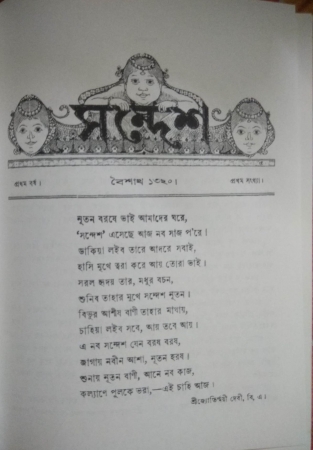 সন্দেশ
প্রথম বর্ষ।
বৈশাখ ১৩২০।
প্রথম সংখ্যা।
নূতন বরষে ভাই আমাদের ঘরে,
'সন্দেশ' এসেছে আজ নব সাজ প'রে।
ডাকিয়া লইব তারে আদরে সবাই,
হাসি মুখে ত্বরা করে আয় তোরা ভাই।
সরল হৃদয় তার, মধুর বচন,
শুনিব তাহার মুখে সন্দেশ নূতন।
বিভুর আশীষ বাণী তাহার মাথায়,
চাহিয়া লইব সবে, আয় তবে আয়।
এ নব সন্দেশ যেন বরষ বরষ,
জাগায় নবীন আশা, নূতন হরষ।
শুনায় নূতন বাণী, আনে নব কাজ,
কল্যাণে পুলকে ভরা,—এই চাহি আজ।
শ্রীজ্যোতির্ম্ময়ী দেবী, বি, এ।